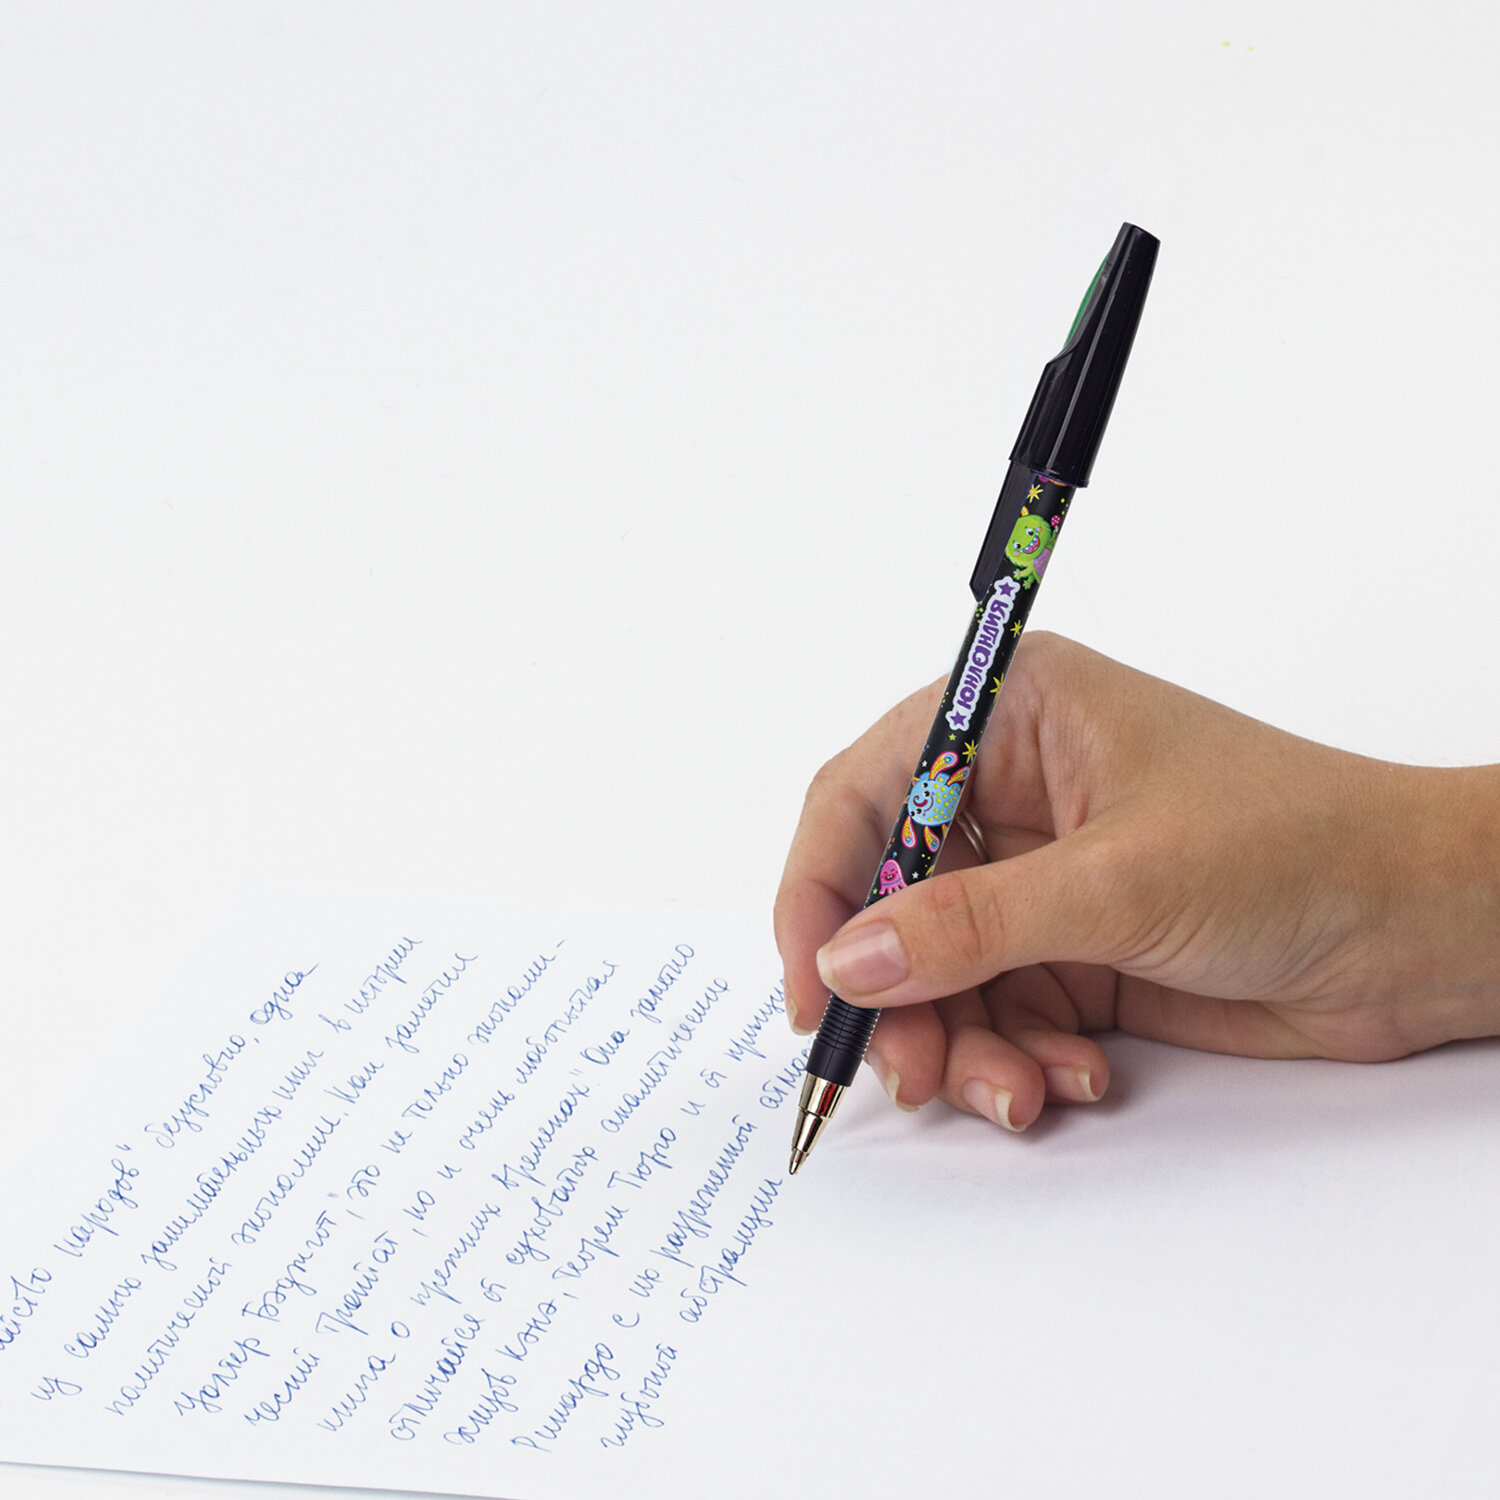 йство народов" безусловно, одна
из самых занимательных книг в истории
политической экономии. Как заметил
Уолтер Бэджгот, "это не только экономи-
ческий трактат, но и очень любопытная
книга о прежних временах". Она заметно
отличается от суховатых аналитических
этюдов Кэнэ, теорем Тюрго и от принци
Рикардо с их разреженной атмос
глубокой абстракции
ЮНЛАНДИЯ